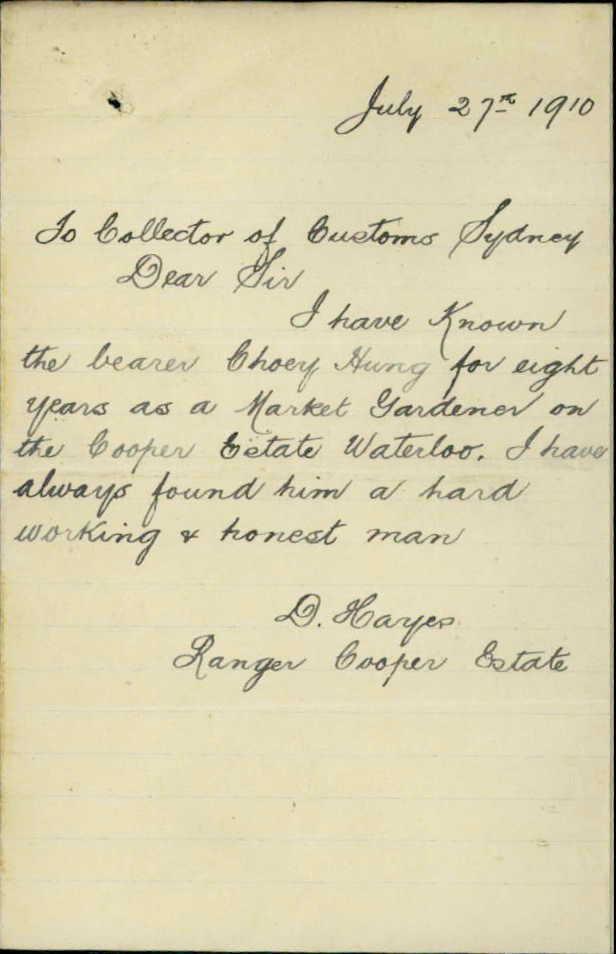 July 27th 1910
To Collector of Customs Sydney
Dear Sir
I have Known
the bearer Choey Hung for eight
years as a Market Gardener on
the Cooper Estate Waterloo. I have
always found him a hard
working & honest man
D. Hayes
Ranger Cooper Estate